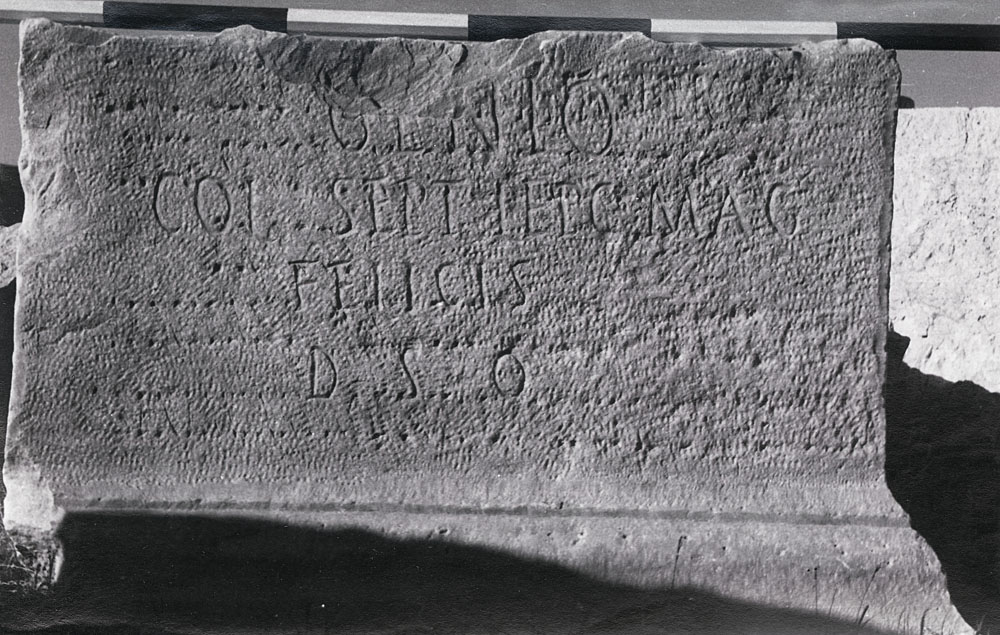 GENIO
COL SEPT TETPC MAG
FELICIS
D S O